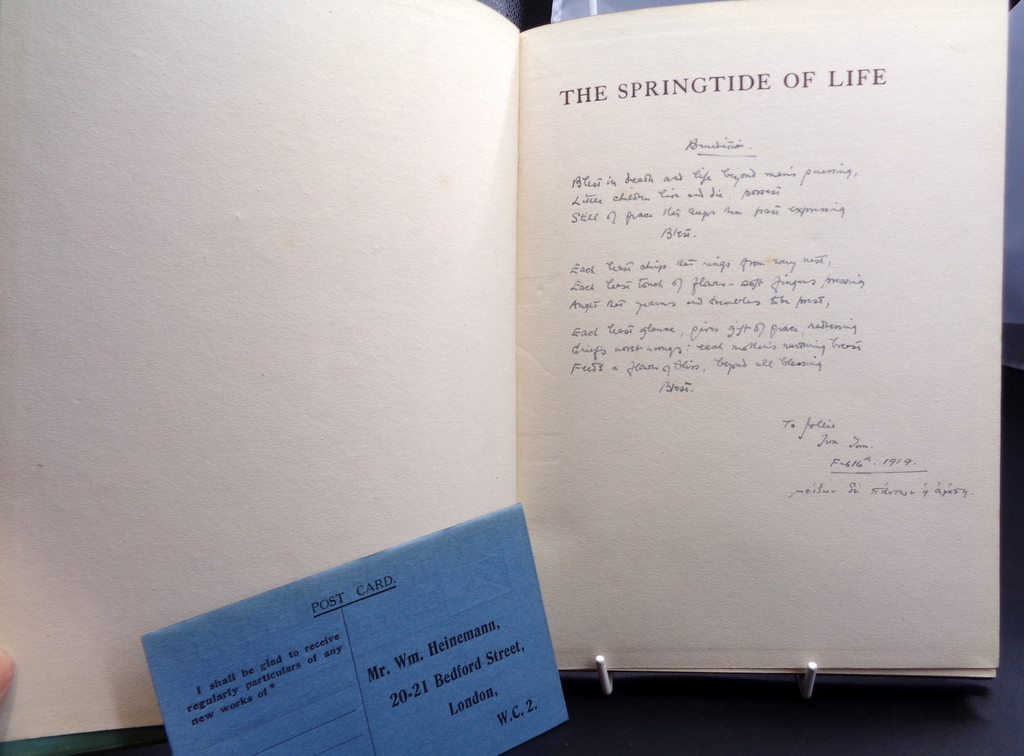 THE SPRINGTIDE OF LIFE
Benediction.
Blest in death and life beyond man's guessing,
Little children live and die, possest
Still of grace that keeps them past expressing
Blest.
Each least chirp that rings from every nest,
Each least touch of flower-soft fingers pressing
Aught that yearns and trembles to be prest,
Each least glance, gives gift of grace, redressing
Grief's worst wrongs: each mother's nurturing breast
Feeds a flower of bliss, beyond all blessing
Blest.
To
from Tom.
Feb 16th. 1919.
μείζων δὲ πάντων ἡ ἀγάπη.
POST CARD.
I shall be glad to receive
regularly particulars of any
new works of*
Mr. Wm. Heinemann,
20-21 Bedford Street,
London,
W.C. 2.